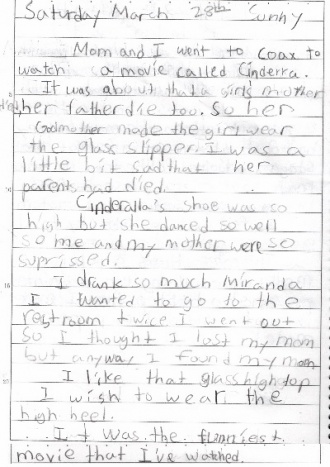 Saturday March 28th Sunny
Mom and I went to Coax to
watch a movie called Cinderra.
It was about that a girls mother
her father die too. So her
Godmother made the girl wear
the glass slipper. I was a
little bit sad that her
parents had died.
Cinderalla's shoe was so
high but she danced so well
so me and my mother were so
suprissed.
I drank so much Miranda
I wanted to go to the
restroom twice I went out
so I thought I lost my mom
but anyway I found my mom
I like that glass high top
I wish to wear the
high heel.
It was the funniest
movie that I've watched.